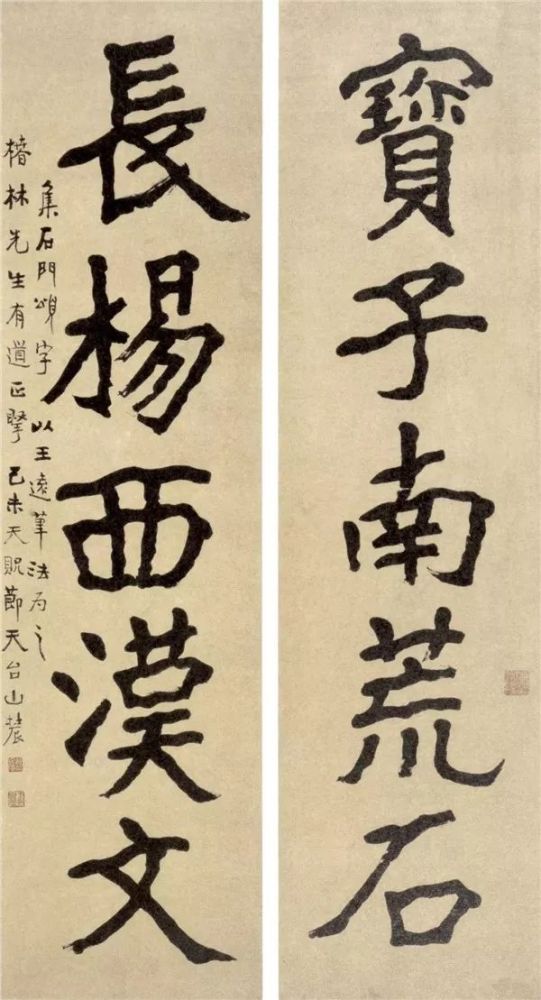 寶子南荒石
長楊西漢文
集石門頌字以王遠筆法为之
椿林先生有道正擘己未天貺節天台山農